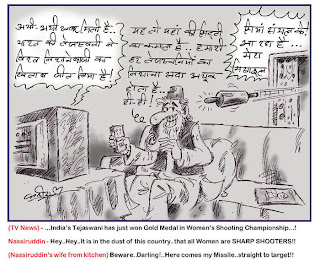 अभी-अभी खबर मिली है-
भारत की तेजस्वनी ने
विश्व निशानेबाजी का
खिताब जीत लिया है!
यह तो यहां की मिट्टी
का कमाल है... हमारी
हर तेजस्वनियों का
निशाना सदा अचूक
होता है-
हा-ही!
मियां संभल के!
आ रहा है...
मेरा
मिसाइल
(TV News) - ...India's Tejaswani has just won Gold Medal in Women's Shooting Championship...!
Nassiruddin - Hey..Hey..it is in the dust of this country..that all Women are SHARP SHOOTERS!!
(Nassiruddin's wife from kitchen) Beware..Darling!..Here comes my Missile..straight to target!!